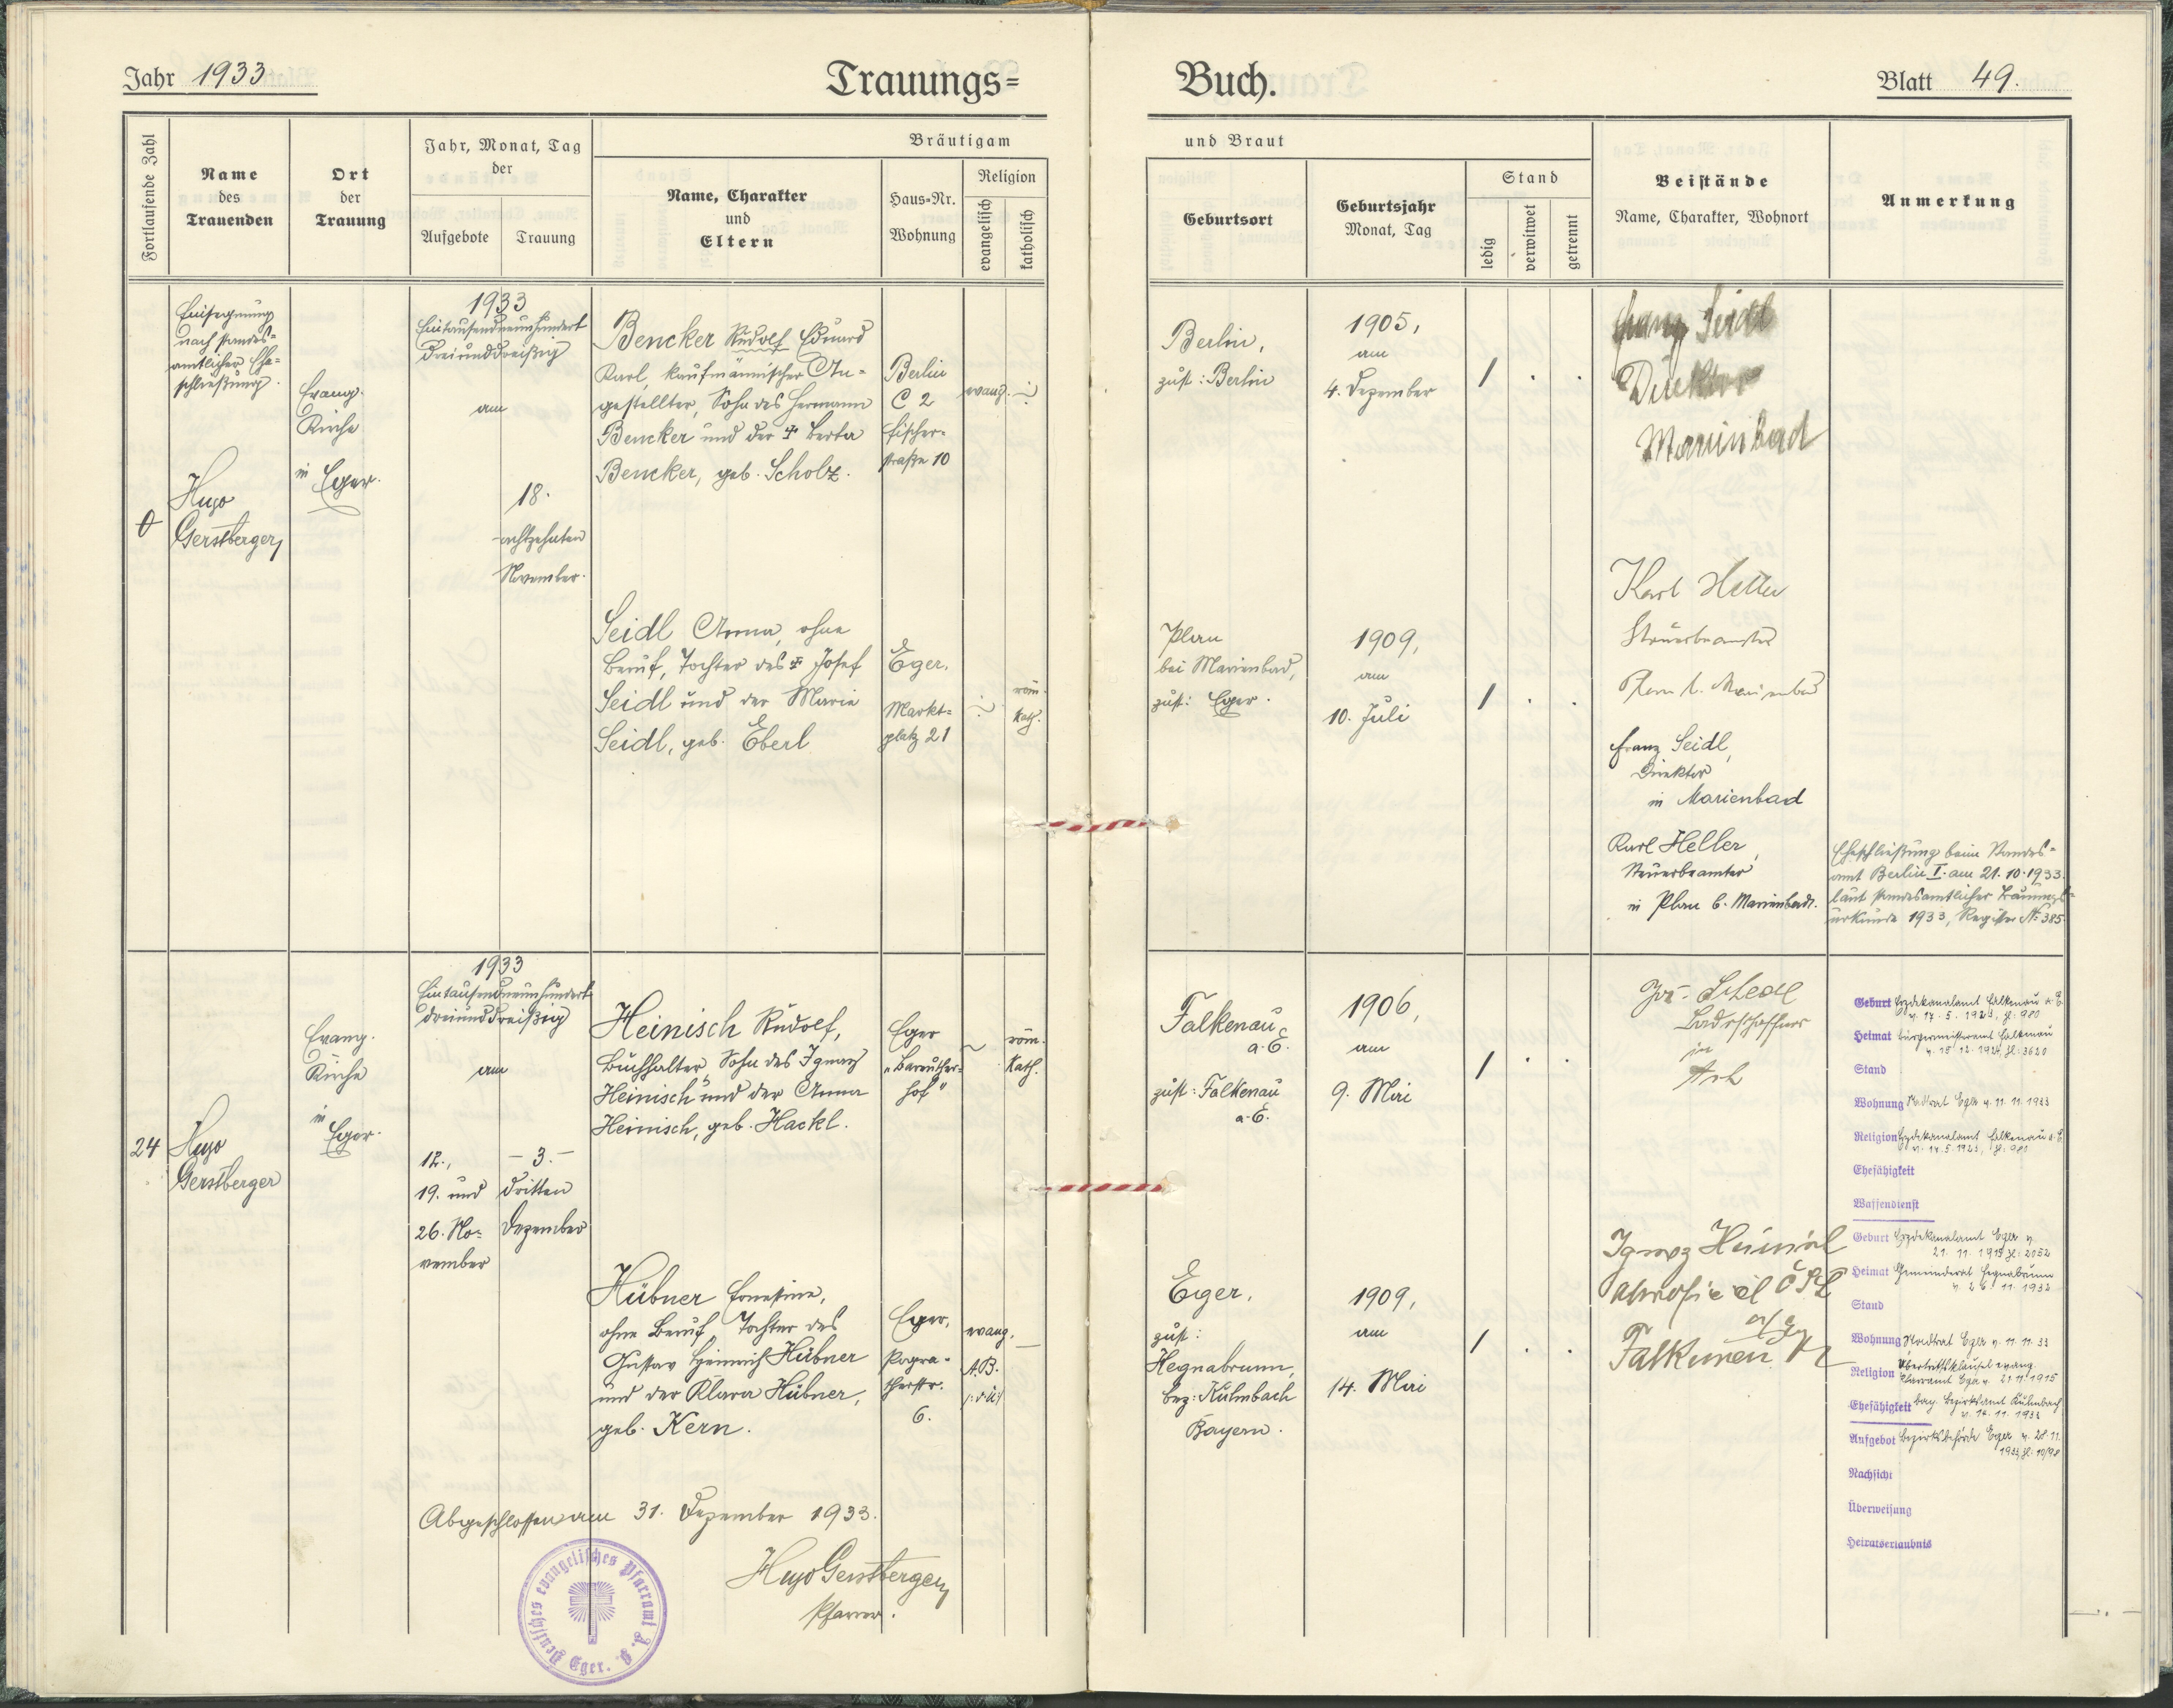 Jahr 1933
Trauungs=
Buch.
Blatt 49.
Fortlaufende Zahl
Name
des
Trauenden
Ort
der
Trauung
Jahr, Monat, Tag
der
Aufgebote
Trauung
Bräutigam
Name, Charakter
und
Eltern
Haus-Nr.
Wohnung
Religion
evangelisch
katholisch
und Braut
Geburtsort
Geburtsjahr
Monat, Tag
Stand
ledig
verwitwet
getrennt
Beistände
Name, Charakter, Wohnort
Anmerkung
0
Einsegnung
nach standes=
amtlicher Ehe=
schließung.
Hugo
Gerstberger
Evang.
Kirche
in Eger.
1933
Eintausendneunhundert
dreiunddreißig
am
18.
achtzehnten
November.
Bencker Rudolf Eduard
Karl, kaufmännischer An=
gestellter, Sohn des Hermann
Bencker und der Berta
Bencker, geb. Scholz.
Berlin
C 2
Fischer=
straße 10
evang.
Berlin,
zust: Berlin
1905,
am
4. Dezember
Franz Seidl
Direktor
Marienbad
Seidl Anna, ohne
Beruf, Tochter des Josef
Seidl und der Maria
Seidl, geb. Eberl
Eger,
Markt=
platz 21
röm.
kath.
Plan
bei Marienbad,
zust: Eger.
1909,
am
10. Juli
Karl Heller
Steuerbeamter
Plan b. Marienbad
Franz Seidl,
Direktor
in Marienbad
Karl Heller,
Steuerbeamter
in Plan b. Marienbad.
Eheschließung beim Standes=
amt Berlin I. am 21.10.1933.
laut standesamtlicher Trauungs=
urkunde 1933, Register Nº 385.
24
Hugo
Gerstberger
Evang.
Kirche
in Eger.
1933
Eintausendneunhundert
dreiunddreißig
am
12.,
19. und
26. No=
vember
– 3. –
dritten
Dezember
Heinisch Rudolf,
Buchhalter, Sohn des Ignaz
Heinisch und der Anna
Heinisch, geb. Hackl.
Eger
"Bareuther=
hof"
röm.
kath.
Falkenau
a.E.
zust: Falkenau
a.E.
1906,
am
9. Mai
in
Asch
Geburt Erzdekanalamt Falkenau a. E.
v. 17. 5. 1923, Zl: 980
Heimat Bürgermeisteramt Falkenau
v. 15. 12. 1924, Zl: 3620
Stand
Wohnung Stadtrat Eger v. 11. 11. 1933
Religion Erzdekanalamt Falkenau a. E.
v. 17. 5. 1923, Zl: 980
Ehefähigkeit
Waffendienst
Hübner Ernestine,
ohne Beruf, Tochter des
Gustav Heinrich Hübner
und der Klara Hübner,
geb. Kern.
Eger,
Pogra=
therstr.
6.
evang.
A.B.
Eger,
zust:
Hegnabrunn,
Bez: Kulmbach
Bayern.
1909,
am
14. Mai
Ignaz Heinisch
Geburt Erzdekanalamt Eger v.
Heimat Gemeinderat Hegnabrunn
Stand
Wohnung Stadtrat Eger v. 11. 11. 33
Religion
Pfarramt Eger v. 21. 11. 1915
Ehefähigkeit bay. Bezirksamt Kulmbach
v. 14. 11. 1933
Aufgebot Bezirksbehörde Eger v. 28. 11.
Nachsicht
Überweisung
Heiratserlaubnis
Abgeschlossen am 31. Dezember 1933.
Hugo Gerstberger
Pfarrer.
Deutsches evangelisches Pfarramt A. B. Eger.